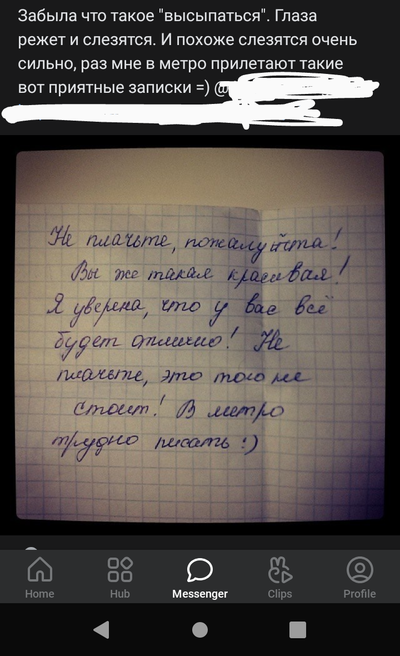 Забыла что такое "высыпаться". Глаза
режет и слезятся. И похоже слезятся очень
сильно, раз мне в метро прилетают такие
вот приятные записки =) @
Не плачьте, пожалуйста!
Вы же такая красивая!
Я уверена, что у вас всё
будет отлично! Не
плачьте, это того не
стоит! В метро
трудно писать :)
Home Hub Messenger Clips Profile